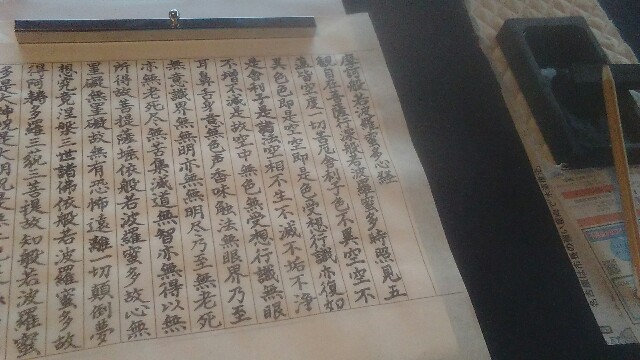 摩訶般若波羅蜜多心経
観自在菩薩行深般若波羅蜜多時照見五
蘊皆空度一切苦厄舎利子色不異空空不
異色色即是空空即是色受想行識亦復如
是舎利子是諸法空相不生不滅不垢不浄
不増不減是故空中無色無受想行識無眼
耳鼻舌身意無色声香味触法無眼界乃至
無意識界無無明亦無無明尽乃至無老死
亦無老死尽無苦集滅道無智亦無得以無
所得故菩提薩埵依般若波羅蜜多故心無
罣礙無罣礙故無有恐怖遠離一切顛倒夢
想究竟涅槃三世諸佛依般若波羅蜜多故
得阿耨多羅三藐三菩提故知般若波羅蜜
多是大神呪是大明呪是無